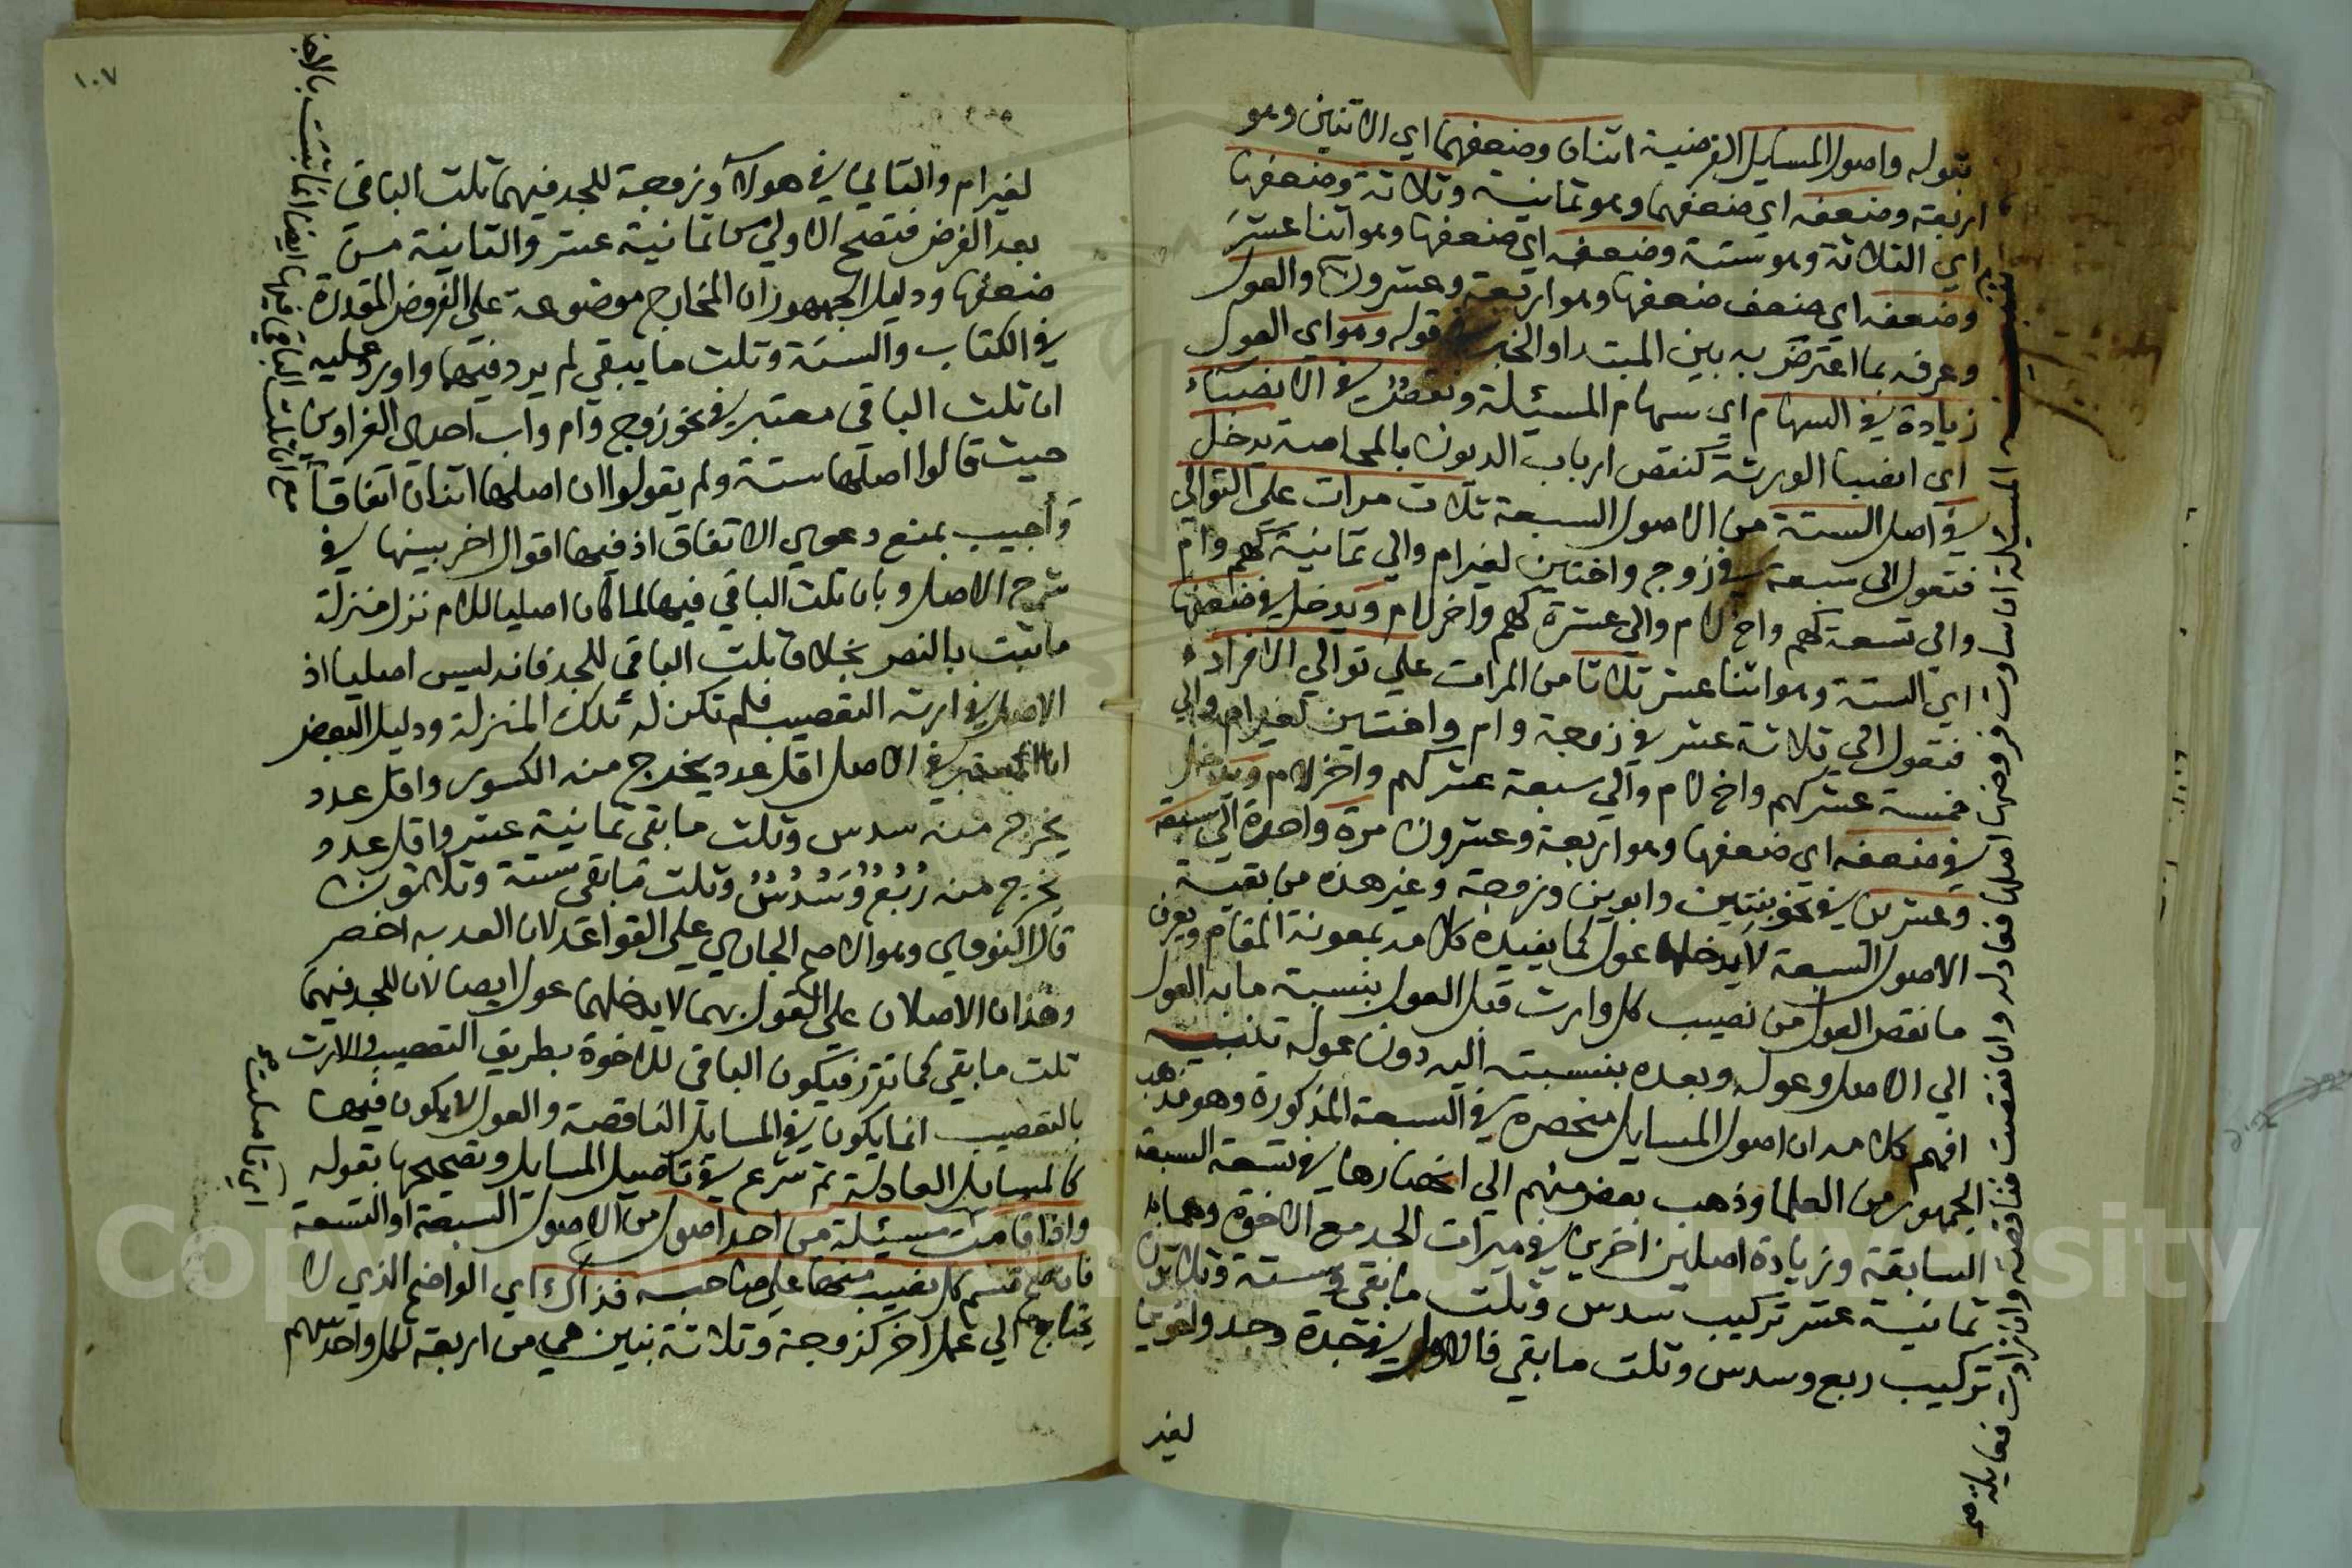 بقوله واصول المسايل الفرضية اثنان وضعفهما اي الاثنين وهو
اربعة وضعفه اي ضعفهما وهو ثمانية وثلاثة وضعفها
اي الثلاثة وهو ستة وضعفه اي ضعفها وهو اثنا عشر
وضعفه اي ضعف ضعفها وهو اربعة وعشرون والعول
وعرفه بما اعترض به بين المبتدا والخبر في قوله وهو اي العول
زيادة في السهام اي سهام المسئلة ونقص في الانصباء
اي انصبا الورثة كنقص ارباب الديون بالمحاصة يدخل
في اصل الستة من الاصول السبعة ثلاث مرات على التوالي
فتعول الى سبعة في زوج واختين لغير ام والي ثمانية كهم وام
والى تسعة كهم واخ لام والي عشرة كهم واخر لام ويدخل في ضعفها
اي الستة وهو اثنا عشر ثلاثا من المرات علي توالي الافراد
فتعول الي ثلاثة عشر في زوجة وام واختين لغير ام والي
خمسة عشر كهم واخ لام والي سبعة عشر كهم واخر لام ويدخل
في ضعفه اي ضعفها وهو اربعة وعشرون مرة واحدة الي سبعة
وعشرين في نحو بنتين وابوين وزوجة وغير هذه من بقية
الاصول السبعة لا يدخلها عول كما يفيده كلامه بمعونة المقام ويعرف
ما نقص العول من نصيب كل وارث قبل العول بنسبة ما به العول
الي الاصل وعوله وبعده بنسبته اليه دون عوله تنبيه
افهم كلامه ان اصول المسايل منحصرة في السبعة المذكورة وهو مذهب
الجمهور من العلما وذهب بعض منهم الي انحصارها في تسعة السبعة
السابقة وزيادة اصلين اخرين في ميراث الجد مع الاخوة وهما
ثمانية عشر تركيب سدس وثلث ما بقي وستة وثلاثون
تركيب ربع وسدس وثلث ما بقي فالاول في جدة وجد واخوين
لغير
المسئلة ان ساوت فروضها اصلها فعادله وان نقصت فناقصه وان زادت فعايله صح
١٠٧
لغير ام والثاني في هولاء وزوجة للجد فيهما ثلث الباقي
بعد الفرض فتصح الاولي من ثمانية عشر والثانية من
ضعفها ودليل الجمهور ان المخارج موضوعة على الفروض المقدرة
في الكتاب والسنة وثلث ما يبقي لم يرد فيهما واورد عليه
ان ثلث الباقي معتبر في نحو زوج وام واب احدي الغراوين
حيث قالوا اصلها ستة ولم يقولوا ان اصلها اثنان اتفاقا
وأجيب بمنع دعوي الاتفاق اذ فيها اقوال اخر بينها في
شرح الاصل وبان ثلث الباقي فيها لما كان اصليا للام نزل منزلة
ما ثبت بالنص بخلاف ثلث الباقي للجد فانه ليس اصليا اذ
الاصل في ارثه التعصيب فلم تكن له تلك المنزلة ودليل البعض
ان المعتبر في الاصل اقل عدد يخرج منه الكسور واقل عدد
يخرج منه سدس وثلث ما بقي ثمانية عشر واقل عدد
يخرج منه ربع وسدس وثلث ما بقي ستة وثلاثون
قال النووي وهو الاصح الجاري علي القواعد لان العد به اخصر
وهذان الاصلان علي القول بهما لا يدخلهما عول ايضا لان للجد فيهما
ثلث ما بقي كما تقرر فيكون الباقي للاخوة بطريق التعصيب والارث
بالتعصيب انما يكون في المسايل الناقصة والعول لا يكون فيها
كالمسايل العادلة ثم شرع في تاصيل المسايل وتصحيحها بقوله
واذا قامت مسئلة من احد اصول من الاصول السبعة او التسعة
فان صح قسم كل نصيب منها على صاحبه فذاك اي الواضح الذي لا
يحتاج معه الي عمل اخر كزوجة وثلاثة بنين هي من اربعة لكل واحد سهم
مع ان ثلث الباقي فيها ايضا انما ثبت
اي تاصلت صح